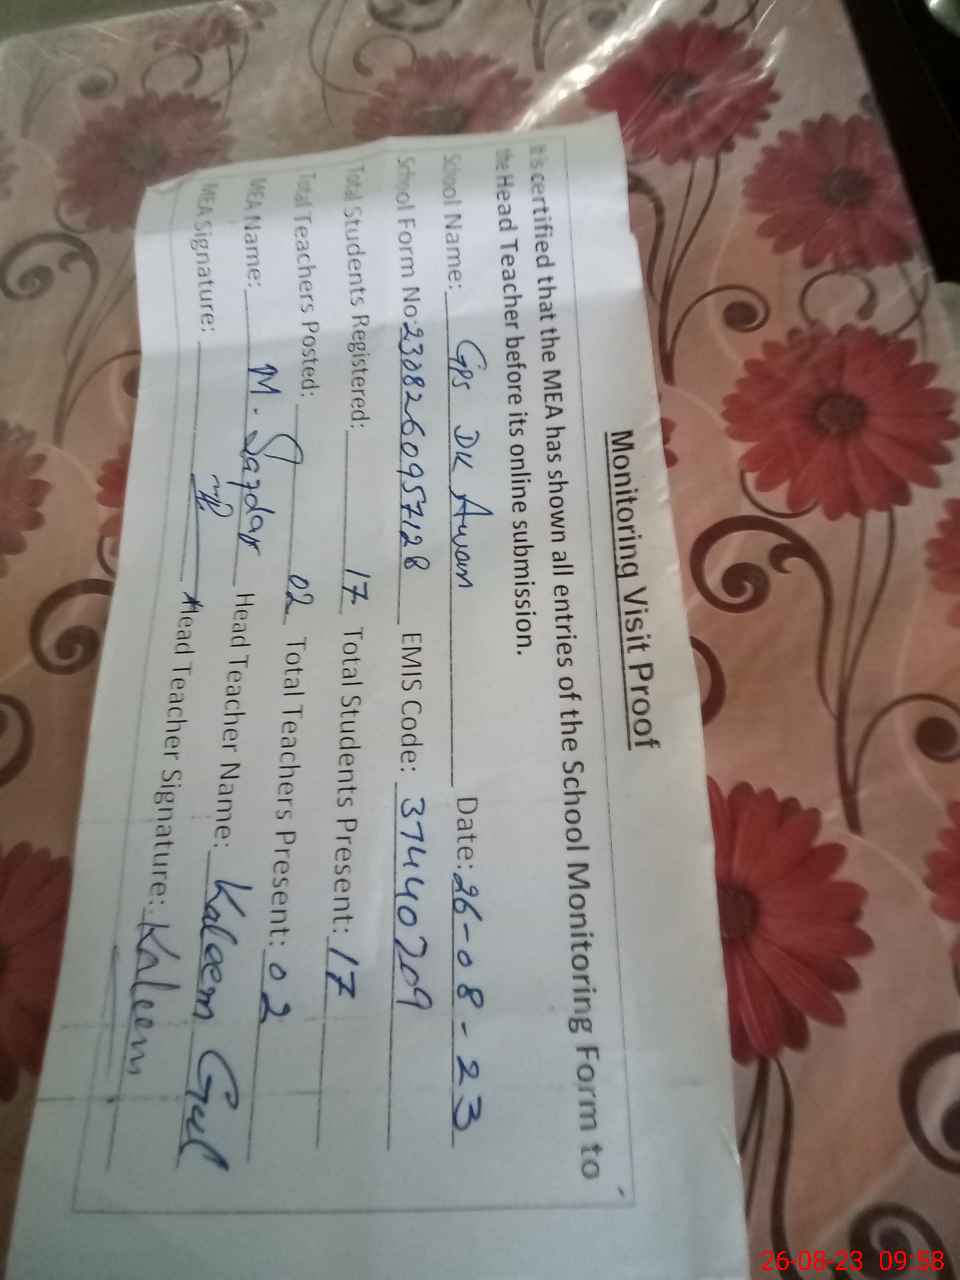 Monitoring Visit Proof
It is certified that the MEA has shown all entries of the School Monitoring Form to
the Head Teacher before its online submission.
School Name: GPS DK Awan Date: 26-08-23
School Form No: 2308260957128 EMIS Code: 37440209
Total Students Registered: 17 Total Students Present: 17
Total Teachers Posted: 02 Total Teachers Present: 02
MEA Name: M. Safdar Head Teacher Name: Kaleem Gul
MEA Signature: Head Teacher Signature: Kaleem
26-08-23 09:58